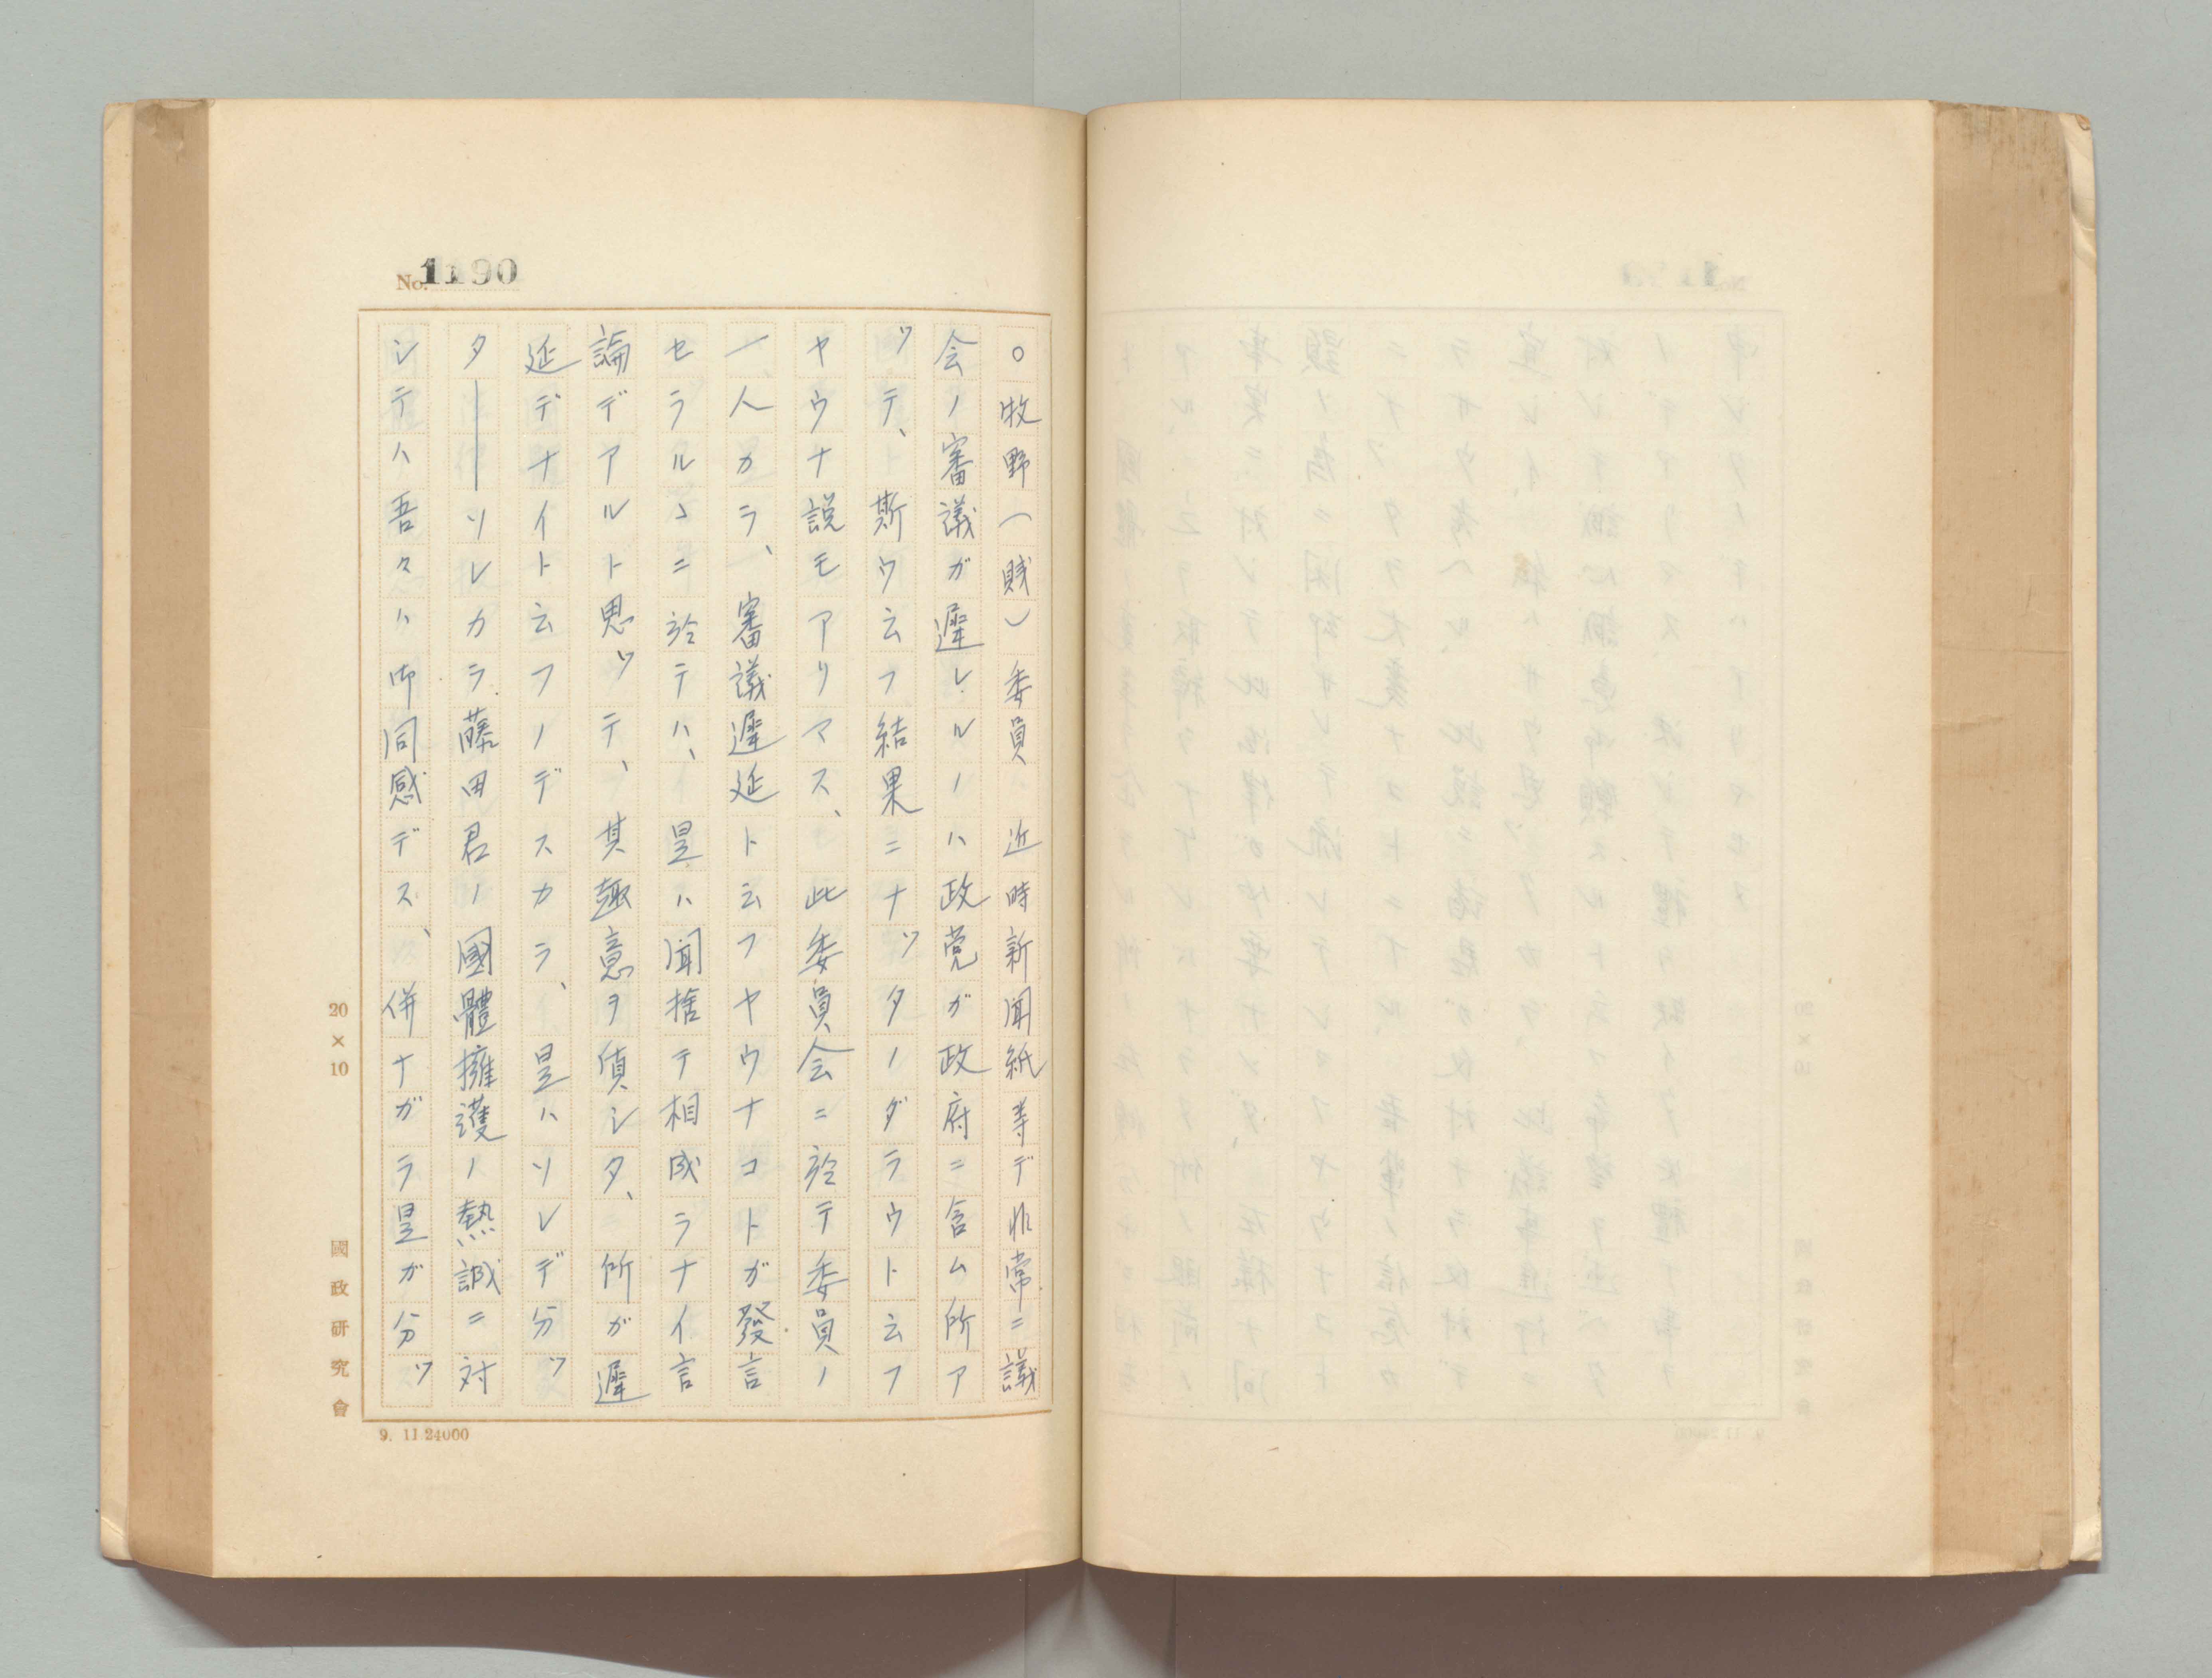 No. 1190
○牧野(賤)委員 近時新聞紙等デ非常ニ議
会ノ審議ガ遲レルノハ政党ガ政府ニ含ム所ア
ッテ、斯ウ云フ結果ニナッタノダラウト云フ
ヤウナ説モアリマス、此委員会ニ於テ委員ノ
一人カラ、審議遲延ト云フヤウナコトガ發言
セラルヽニ於テハ、是ハ聞捨テ相成ラナイ言
論デアルト思ッテ、其趣意ヲ質シタ、所ガ遲
延デナイト云フノデスカラ、是ハソレデ分ッ
タ――ソレカラ藤田君ノ國體擁護ノ熱誠ニ対
シテハ吾々ハ御同感デス、併ナガラ是ガ分ッ
20×10
國政研究會
9. 11 24000